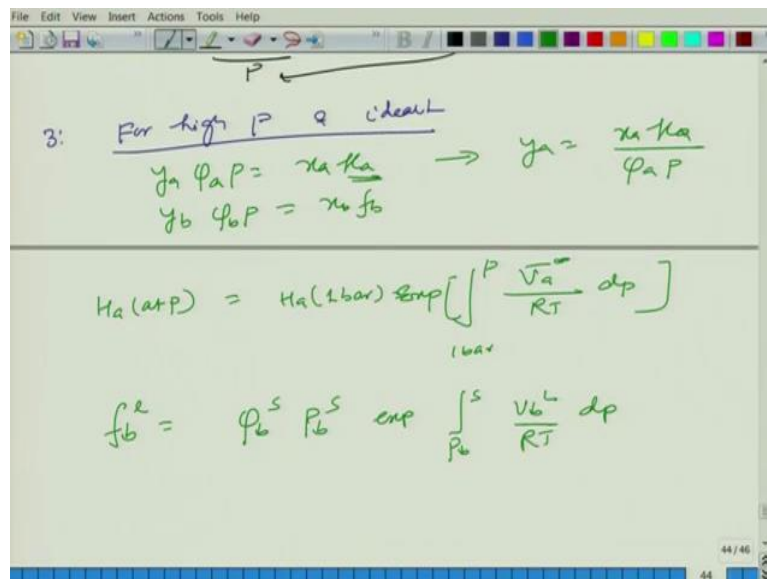 File Edit View Insert Actions Tools Help
B I
P
3: For high P & ideal L
yₐ φₐ P = xₐ Hₐ → yₐ = xₐ Hₐ / φₐ P
y_b φ_b P = x_b f_b
Hₐ (at P) = Hₐ (1 bar) exp [ ∫_{1 bar}^{P} V̄ₐ^∞ / RT dp ]
f_b^l = φ_b^s P_b^s exp ∫_{P_b}^{s} V_b^L / RT dp
44 / 46
44